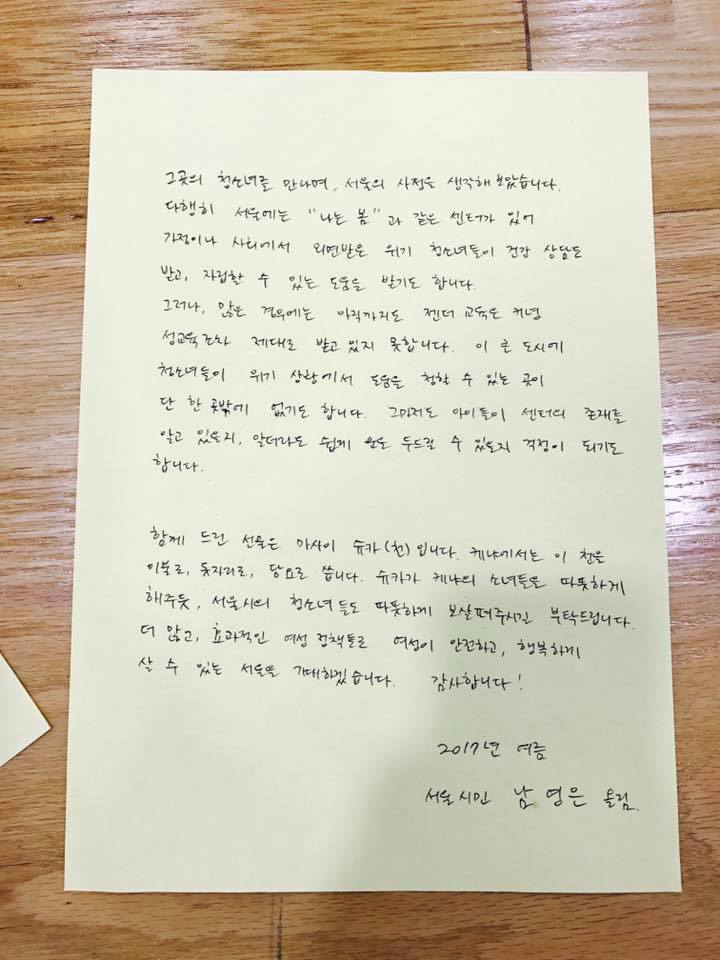 그곳의 청소녀를 만나며, 서울의 사정을 생각해 보았습니다.
다행히 서울에는 "나는 봄"과 같은 센터가 있어
가정이나 사회에서 외면받은 위기 청소녀들이 건강 상담도
받고, 자립할 수 있는 도움을 받기도 합니다.
그러나, 많은 경우에는 아직까지도 젠더 교육은 커녕
성교육조차 제대로 받고 있지 못합니다. 이 큰 도시에
청소녀들이 위기 상황에서 도움을 청할 수 있는 곳이
단 한 곳밖에 없기도 합니다. 그마저도 아이들이 센터의 존재를
알고 있을지, 알더라도 쉽게 문도 두드릴 수 있을지 걱정이 되기도
합니다.
함께 드린 선물은 마사이 슈카(천)입니다. 케냐에서는 이 천을
이불로, 돗자리로, 담요로 씁니다. 슈카가 케냐의 소녀들을 따뜻하게
해주듯, 서울시의 청소녀들도 따뜻하게 보살펴주시길 부탁드립니다.
더 많고, 효과적인 여성 정책들로 여성이 안전하고, 행복하게
살 수 있는 서울을 기대하겠습니다. 감사합니다!
2017년 여름
서울시민 남영은 올림.